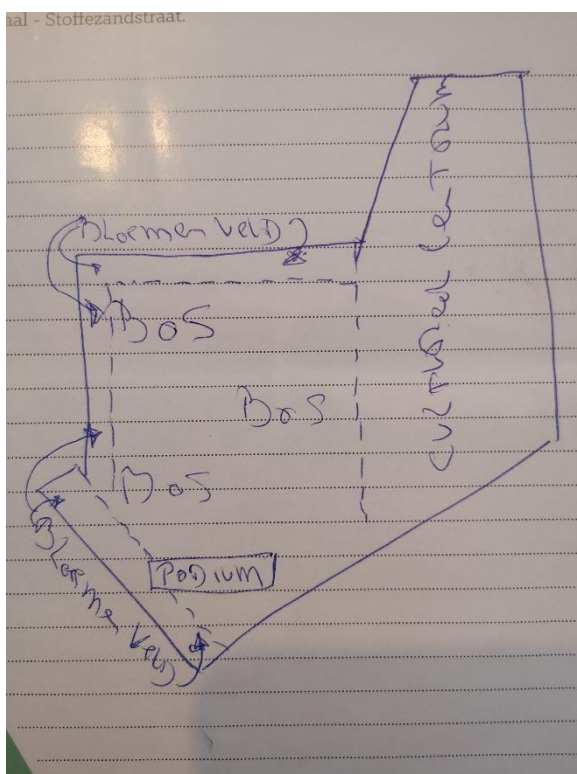 aal - Stoffezandstraat.
BLoemen VelD
BoS
BoS
CULTUREEL CenTRUM
BoS
PODIUM
BLoemen VelD